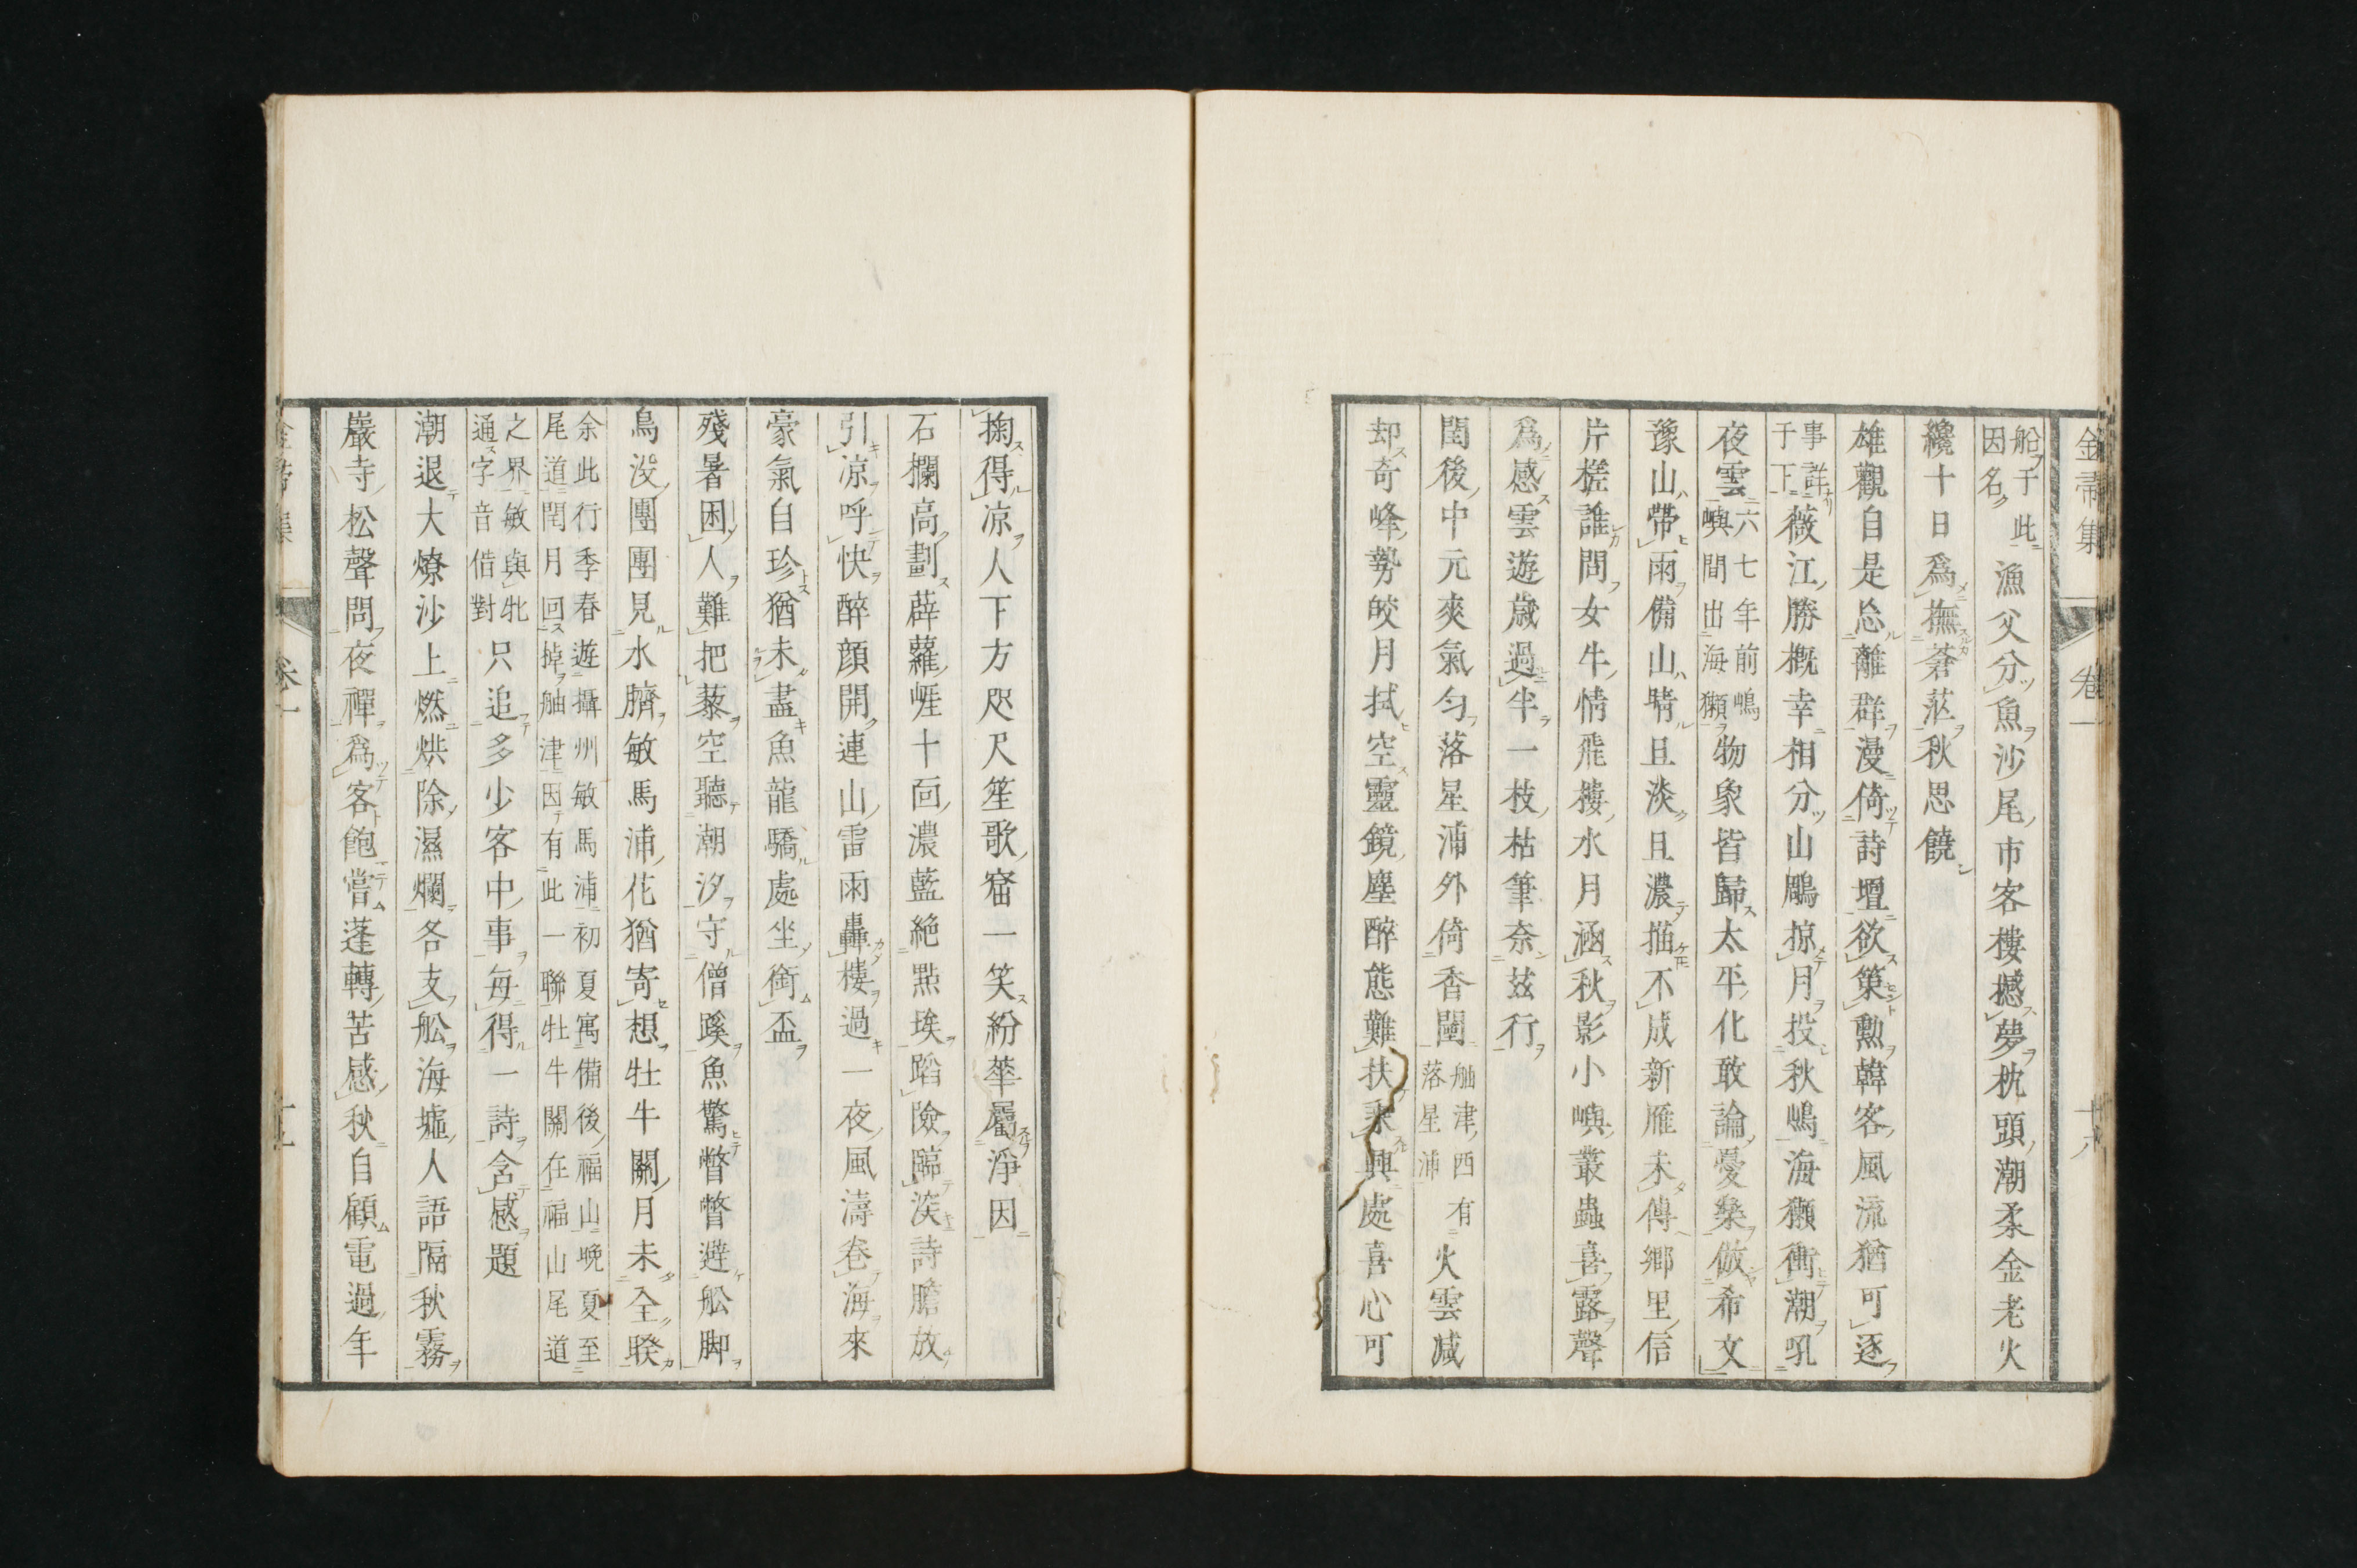 金帚集 卷一 十八
船于此因名漁父分魚沙尾市客樓撼夢枕頭潮柔金老火
纔十日爲撫蒼茫秋思饒
雄觀自是忌離群漫倚詩壇欲策勲韓客風流猶可逐
事詳于下薇江勝概幸相分山鵰掠月投秋嶋海獺衝潮吼
夜雲六七年前嶋嶼間出海獺物象皆歸太平化敢論憂樂倣希文
豫山帶雨備山晴且淡且濃描不成新雁未傳鄉里信
片槎誰問女牛情飛樓水月涵秋影小嶼叢蟲喜露聲
爲感雲遊歲過半一枝枯筆奈茲行
閏後中元爽氣勻落星浦外倚香闉舳津西有落星浦火雲减
却奇峰勢皎月拭空靈鏡塵醉態難扶乘興處喜心可
掬得凉人下方咫尺笙歌窟一笑紛華屬淨因
石欄高劃薜蘿崕十回濃藍絕點埃蹈險臨深詩膽放
引凉呼快醉顏開連山雷雨轟樓過一夜風濤卷海來
豪氣自珍猶未盡魚龍驕處坐銜盃
殘暑困人難把藜空聽潮汐守僧蹊魚驚瞥瞥避舩脚
鳥没團團見水臍敏馬浦花猶寄想牡牛關月未全睽
余此行季春遊攝州敏馬浦初夏寓備後福山晩夏至尾道閏月回掉舳津因有此一聯牡牛關在福山尾道
之界敏與牝通字音借對只追多少客中事每得一詩含感題
潮退大燎沙上燃烘除濕爛各支舩海墟人語隔秋霧
嚴寺松聲問夜禪爲客飽嘗蓬轉苦感秋自顧電過年